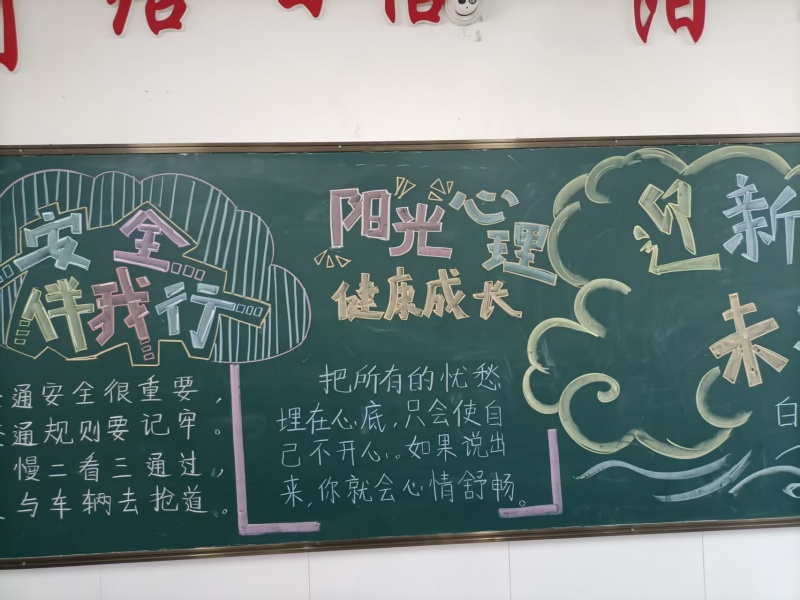 安全
伴我行
通安全很重要，
通规则要记牢。
慢二看三通过，
与车辆去抢道。
阳光心理
健康成长
把所有的忧愁
埋在心底，只会使自
己不开心。如果说出
来，你就会心情舒畅。
迎新
未
白